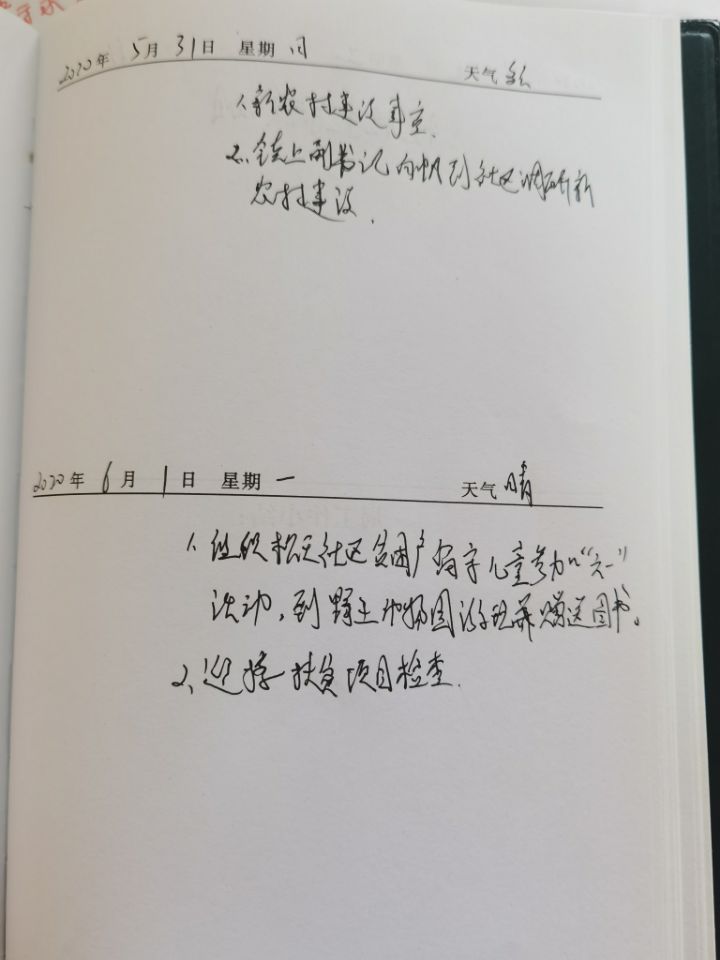 2020年 5月 31日 星期日 天气
1、新农村建设事宜.
2、镇上副书记 到社区调研新
农村建设.
2020年 6月 1日 星期一 天气 晴
1、组织 社区贫困户 留守儿童参加“六一”
活动，到野生动物园游玩并赠送图书。
2、迎接扶贫项目检查.